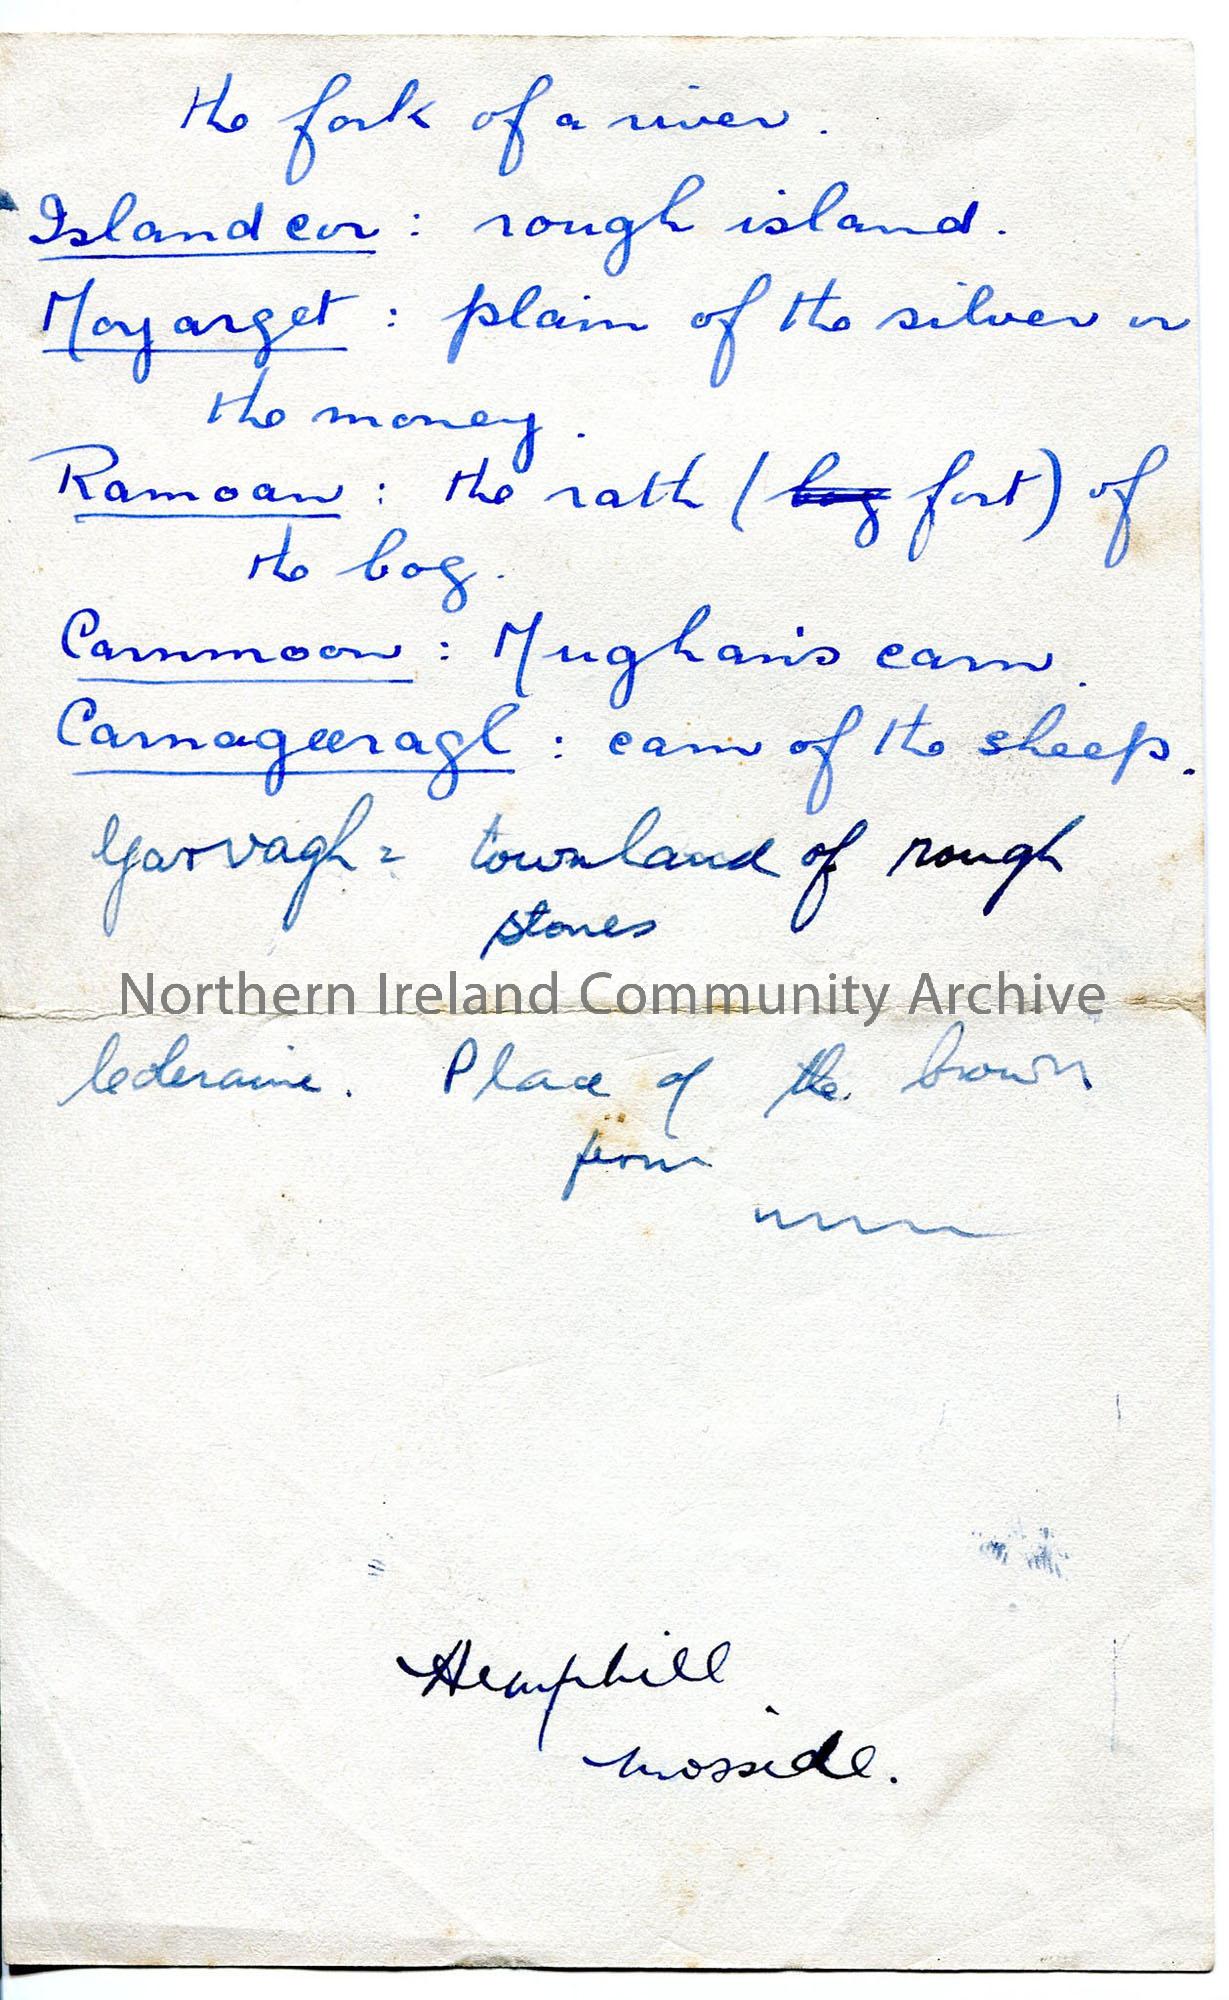 the fork of a river.
Islandcor: rough island.
Moyarget: plain of the silver or
the money.
Ramoan: the rath (bog fort) of
the bog.
Carnmoon: Mughan's carn.
Carnageeragh: carn of the sheep.
Garvagh = townland of rough
stones
Northern Ireland Community Archive
Coleraine. Place of the brown
fern
Hemphill
Mosside.